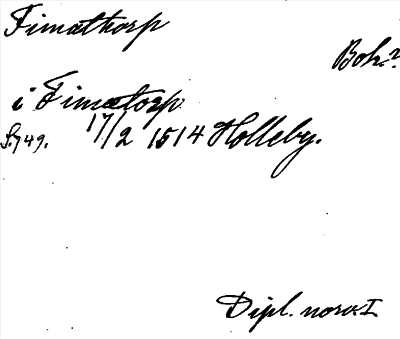 Fimathorp
Boh.?
i Fimatorp
S. 749. 17/2 1514 Holleby.
Dipl. norv. I